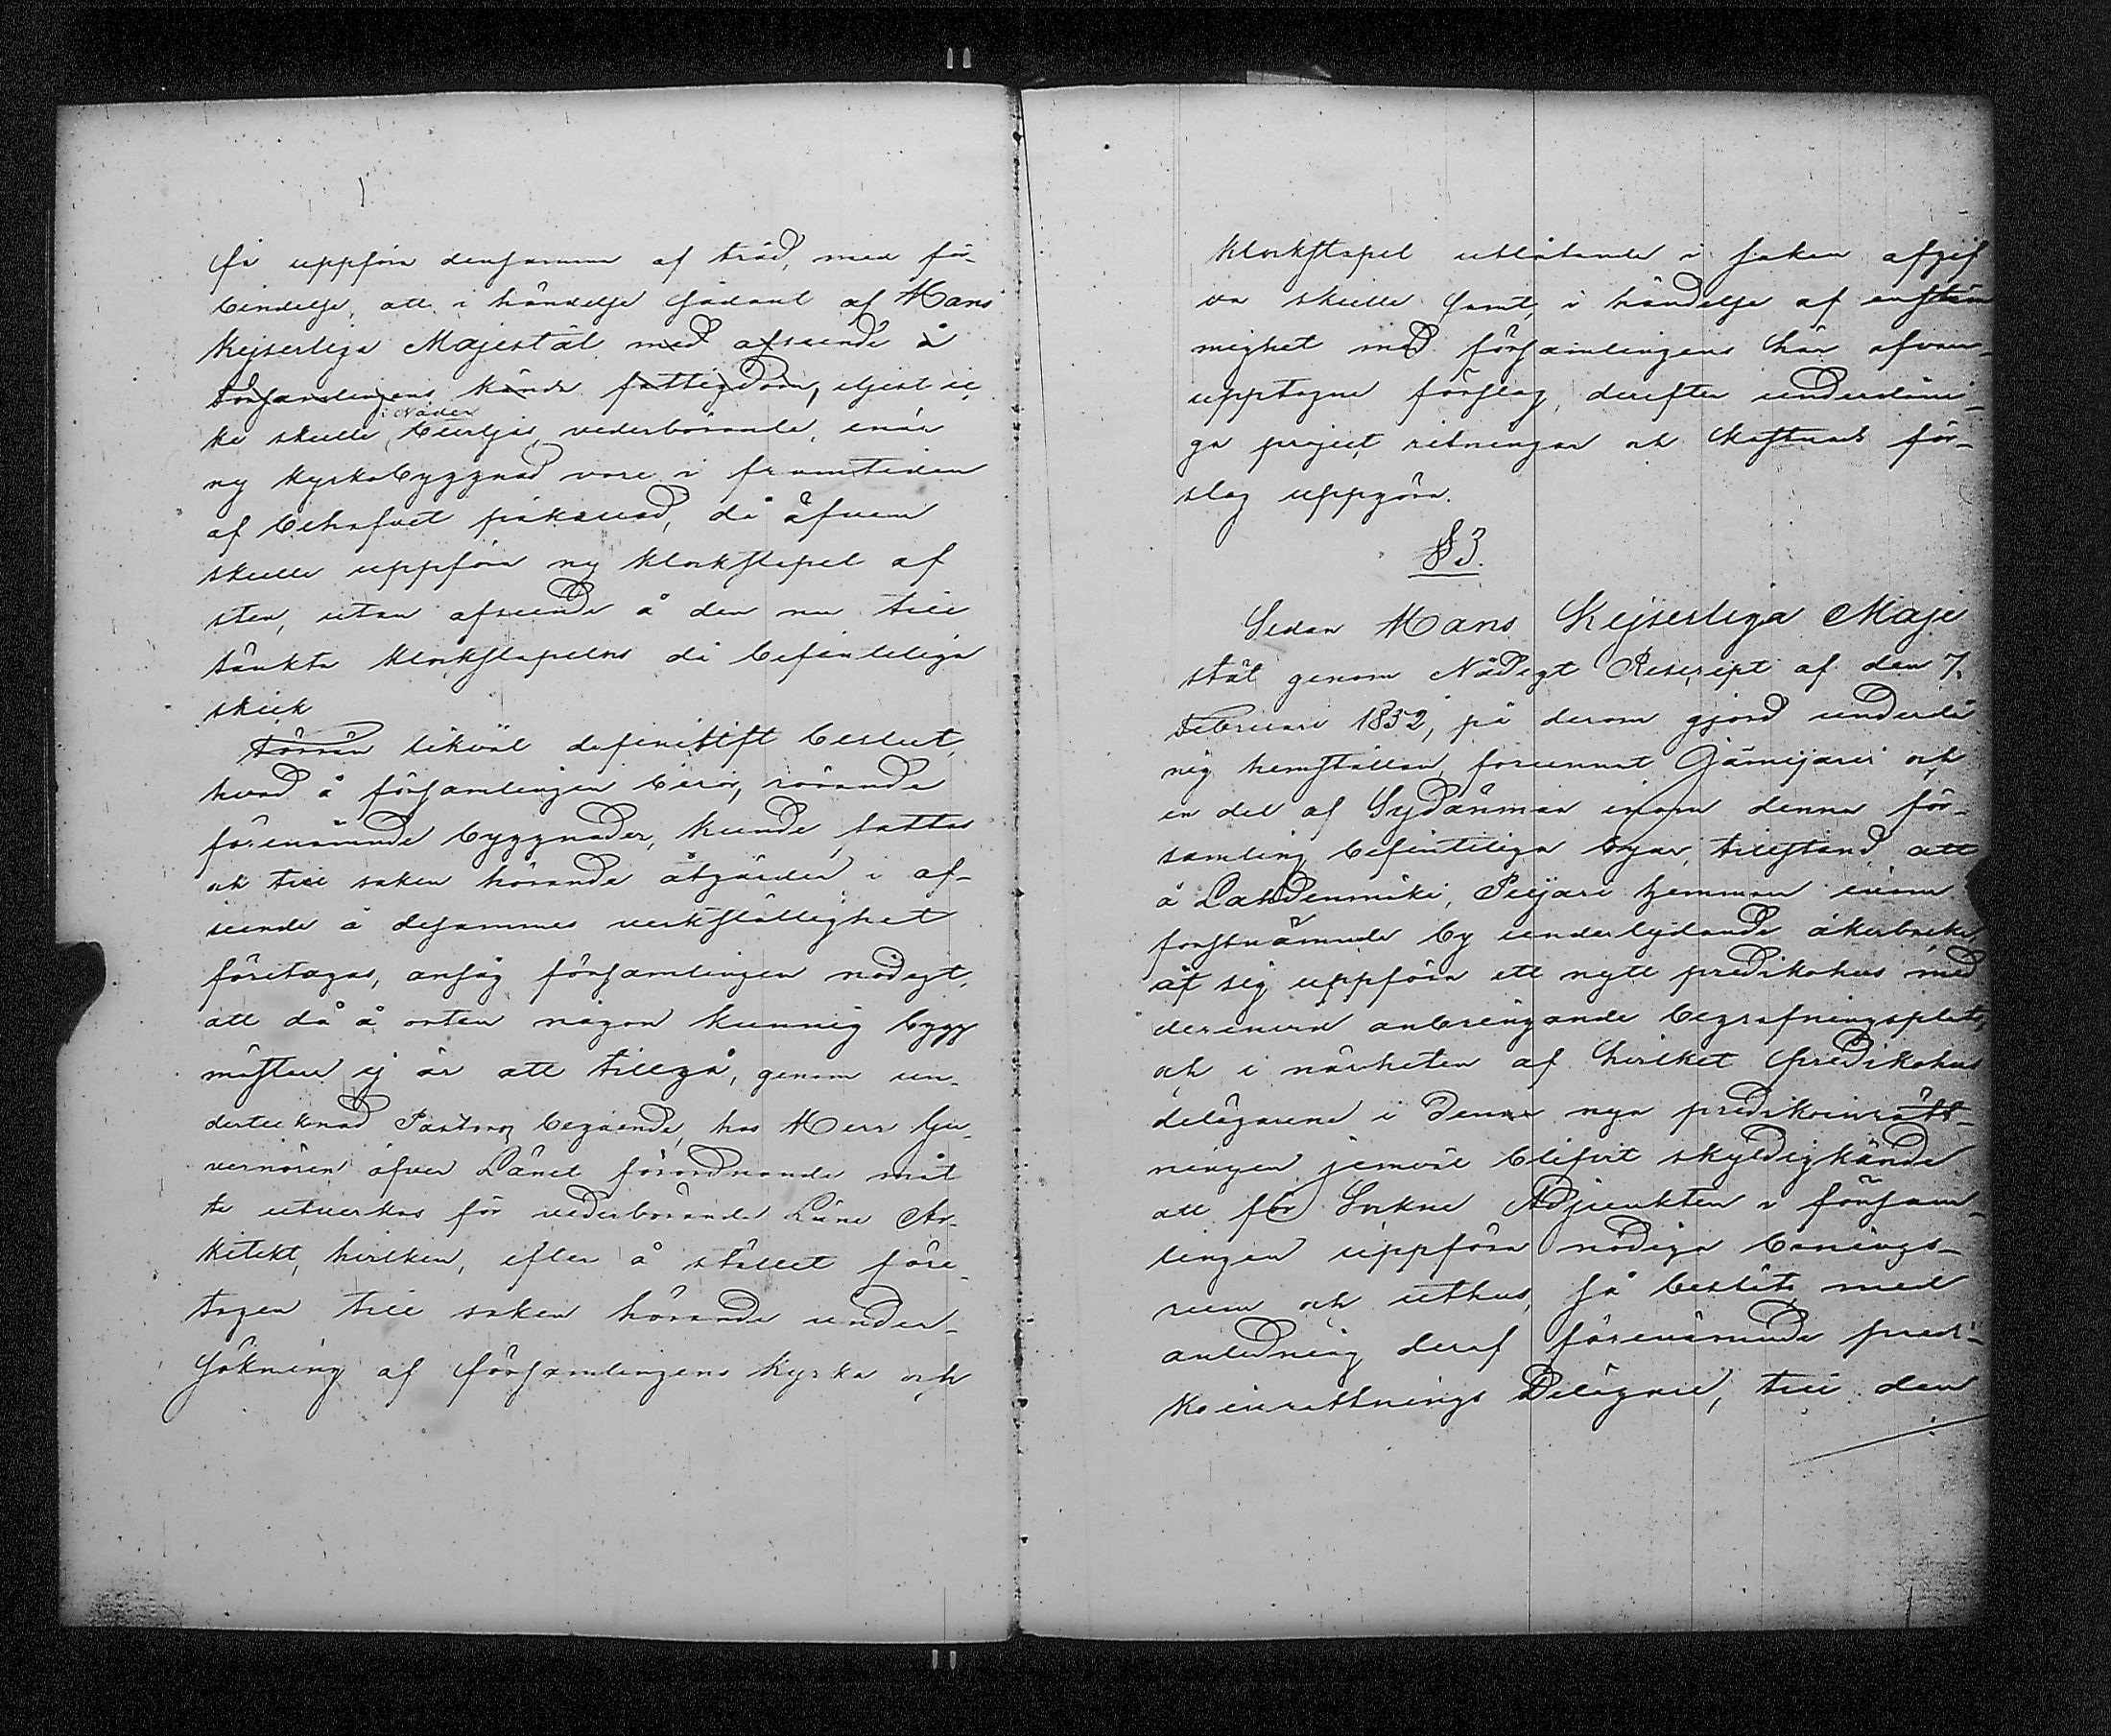 få uppföra densamma af träd, med för-
bindelse, att i händelse sådant af Hans
Kejserliga Majestät med afseende å
Församlingens kända fattigdom, eljest ic
i Nåder
ke skulle beviljas, vederbörande, enär
ny kyrkobyggnad vore i framtiden
af behofvet påkallad, då äfven
skulle uppföra ny klockstapel af
sten, utan afseende å den nu till
tänkta klockstapelns då befinteliga
skick
Förrän likväl definitift beslut,
hvad å församlingen beror, rörande
förenämnde byggnader, kunde fattas
och till saken hörande åtgärder i af-
seende å desammes verkställighet
företagas, ansåg församlingen nödigt,
att då å orten någon kunnig bygg
mästare ej är att tillgå, genom un-
dertecknad Pastors begående, hos Herr Gu-
vernören öfver Länet förordnande måt
te utverkas för vederbörande Läns Ar-
kitekt, hvilken, efter å stället före-
tagen till saken hörande under-
sökning af församlingens kyrka och
klockstapel utlåtande i saken afgif
va skulle samt, i händelse af enstäm
mighet med församlingens här ofvan-
upptagne förslag, derefter underdåni-
ga project ritningar och kostnads för-
slag uppgöra.
§ 3.
Sedan Hans Kejserliga Maje
stät genom Nådigt Rescript af den 7.
Februari 1852, på derom gjord underdå
nig hemställan, förunnat Jämijärvi och
en del af Sydänmaa inom denna för-
samling befinteliga byar, tillstånd att
å Lahdenmäki, Peijari hemman inom
förstnämnde by underlydande åkerbacke,
åt sig uppföra ett nytt predikohus med
derinvid anbringande begrafningsplats,
och i närheten af hvilket predikohus
delägarene i denna nya predikoinrätt-
ningen jemväl blifvit skyldigkände
att för Sockne Adjunkten i försam-
lingen uppföra nödiga bonings-
rum och uthus, så beslöts med
anledning deraf förenämnde predi-
koinrättnings Delägare, till den